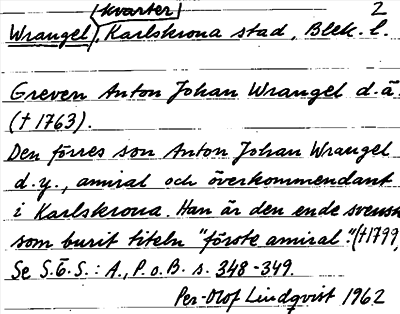 kvarter 2
Wrangel, Karlskrona stad, Blek. l.
Greven Anton Johan Wrangel d.ä.
(† 1763).
Den förres son Anton Johan Wrangel
d.y., amiral och överkommendant
i Karlskrona. Han är den ende svensk
som burit titeln "förste amiral". (†1799)
Se S.Ö.S.: A., P.o.B. s. 348-349.
Per-Olof Lindqvist 1962